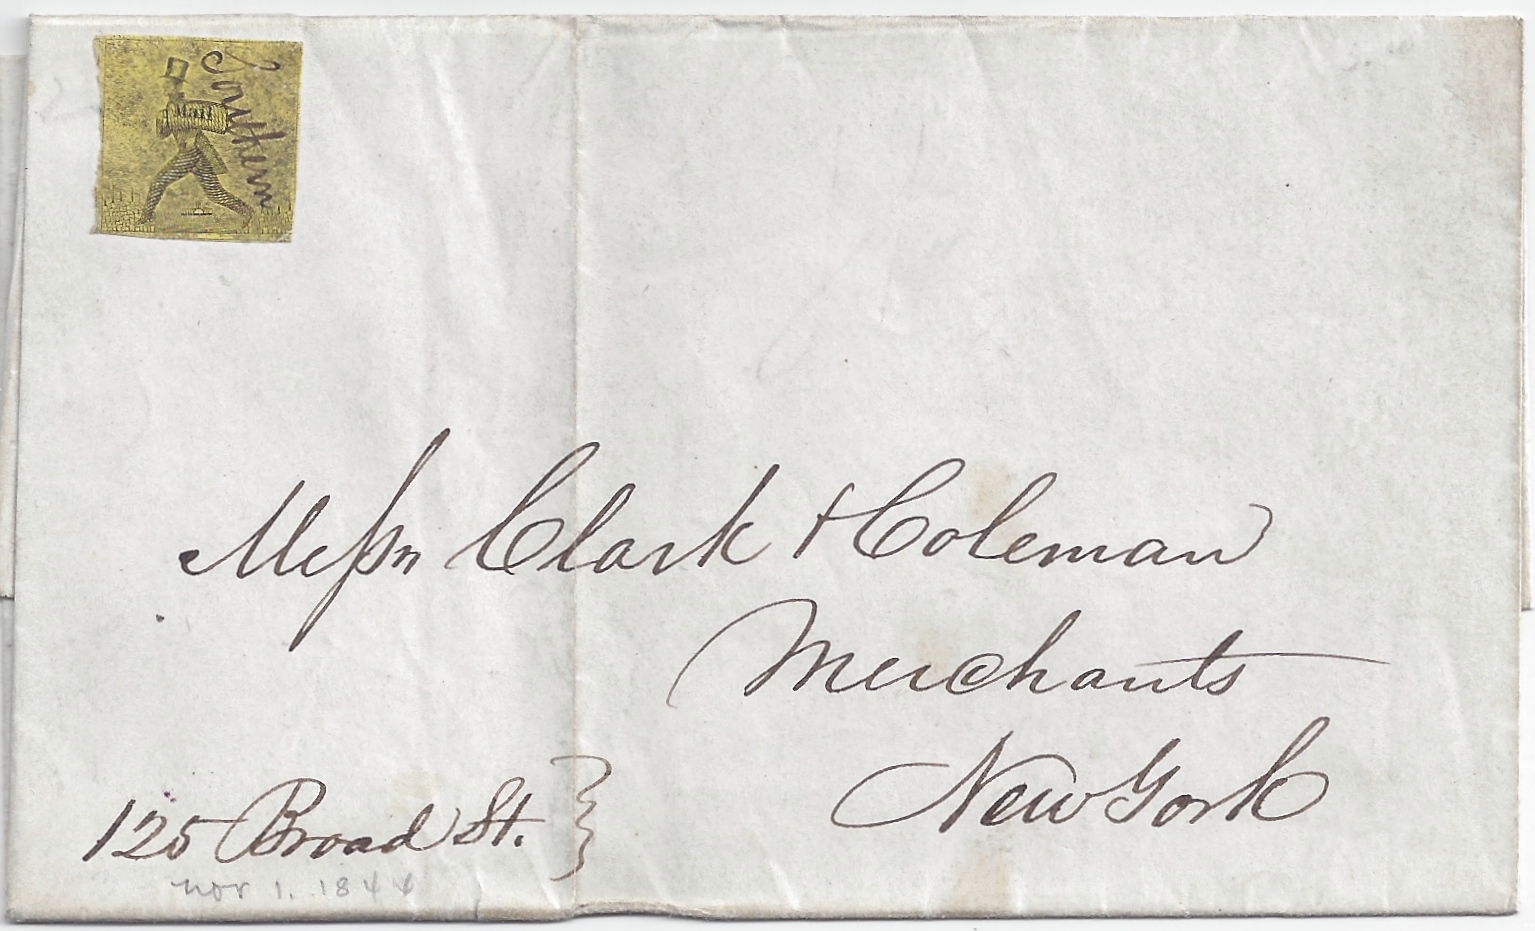 Southern
Messrs Clark & Coleman
Merchants
New York
125 Broad St.
nov 1. 1844